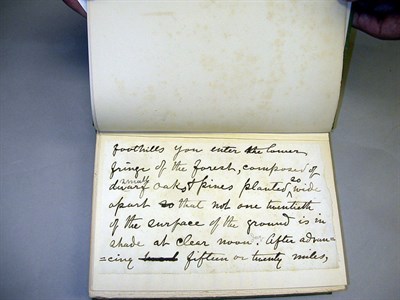 foothills you enter the lower
fringe of the forest, composed of
small
dwarf oaks & pines planted so wide
apart so that not one twentieth
of the surface of the ground is in
shade at clear noon. After advan-
=cing fifteen or twenty miles,